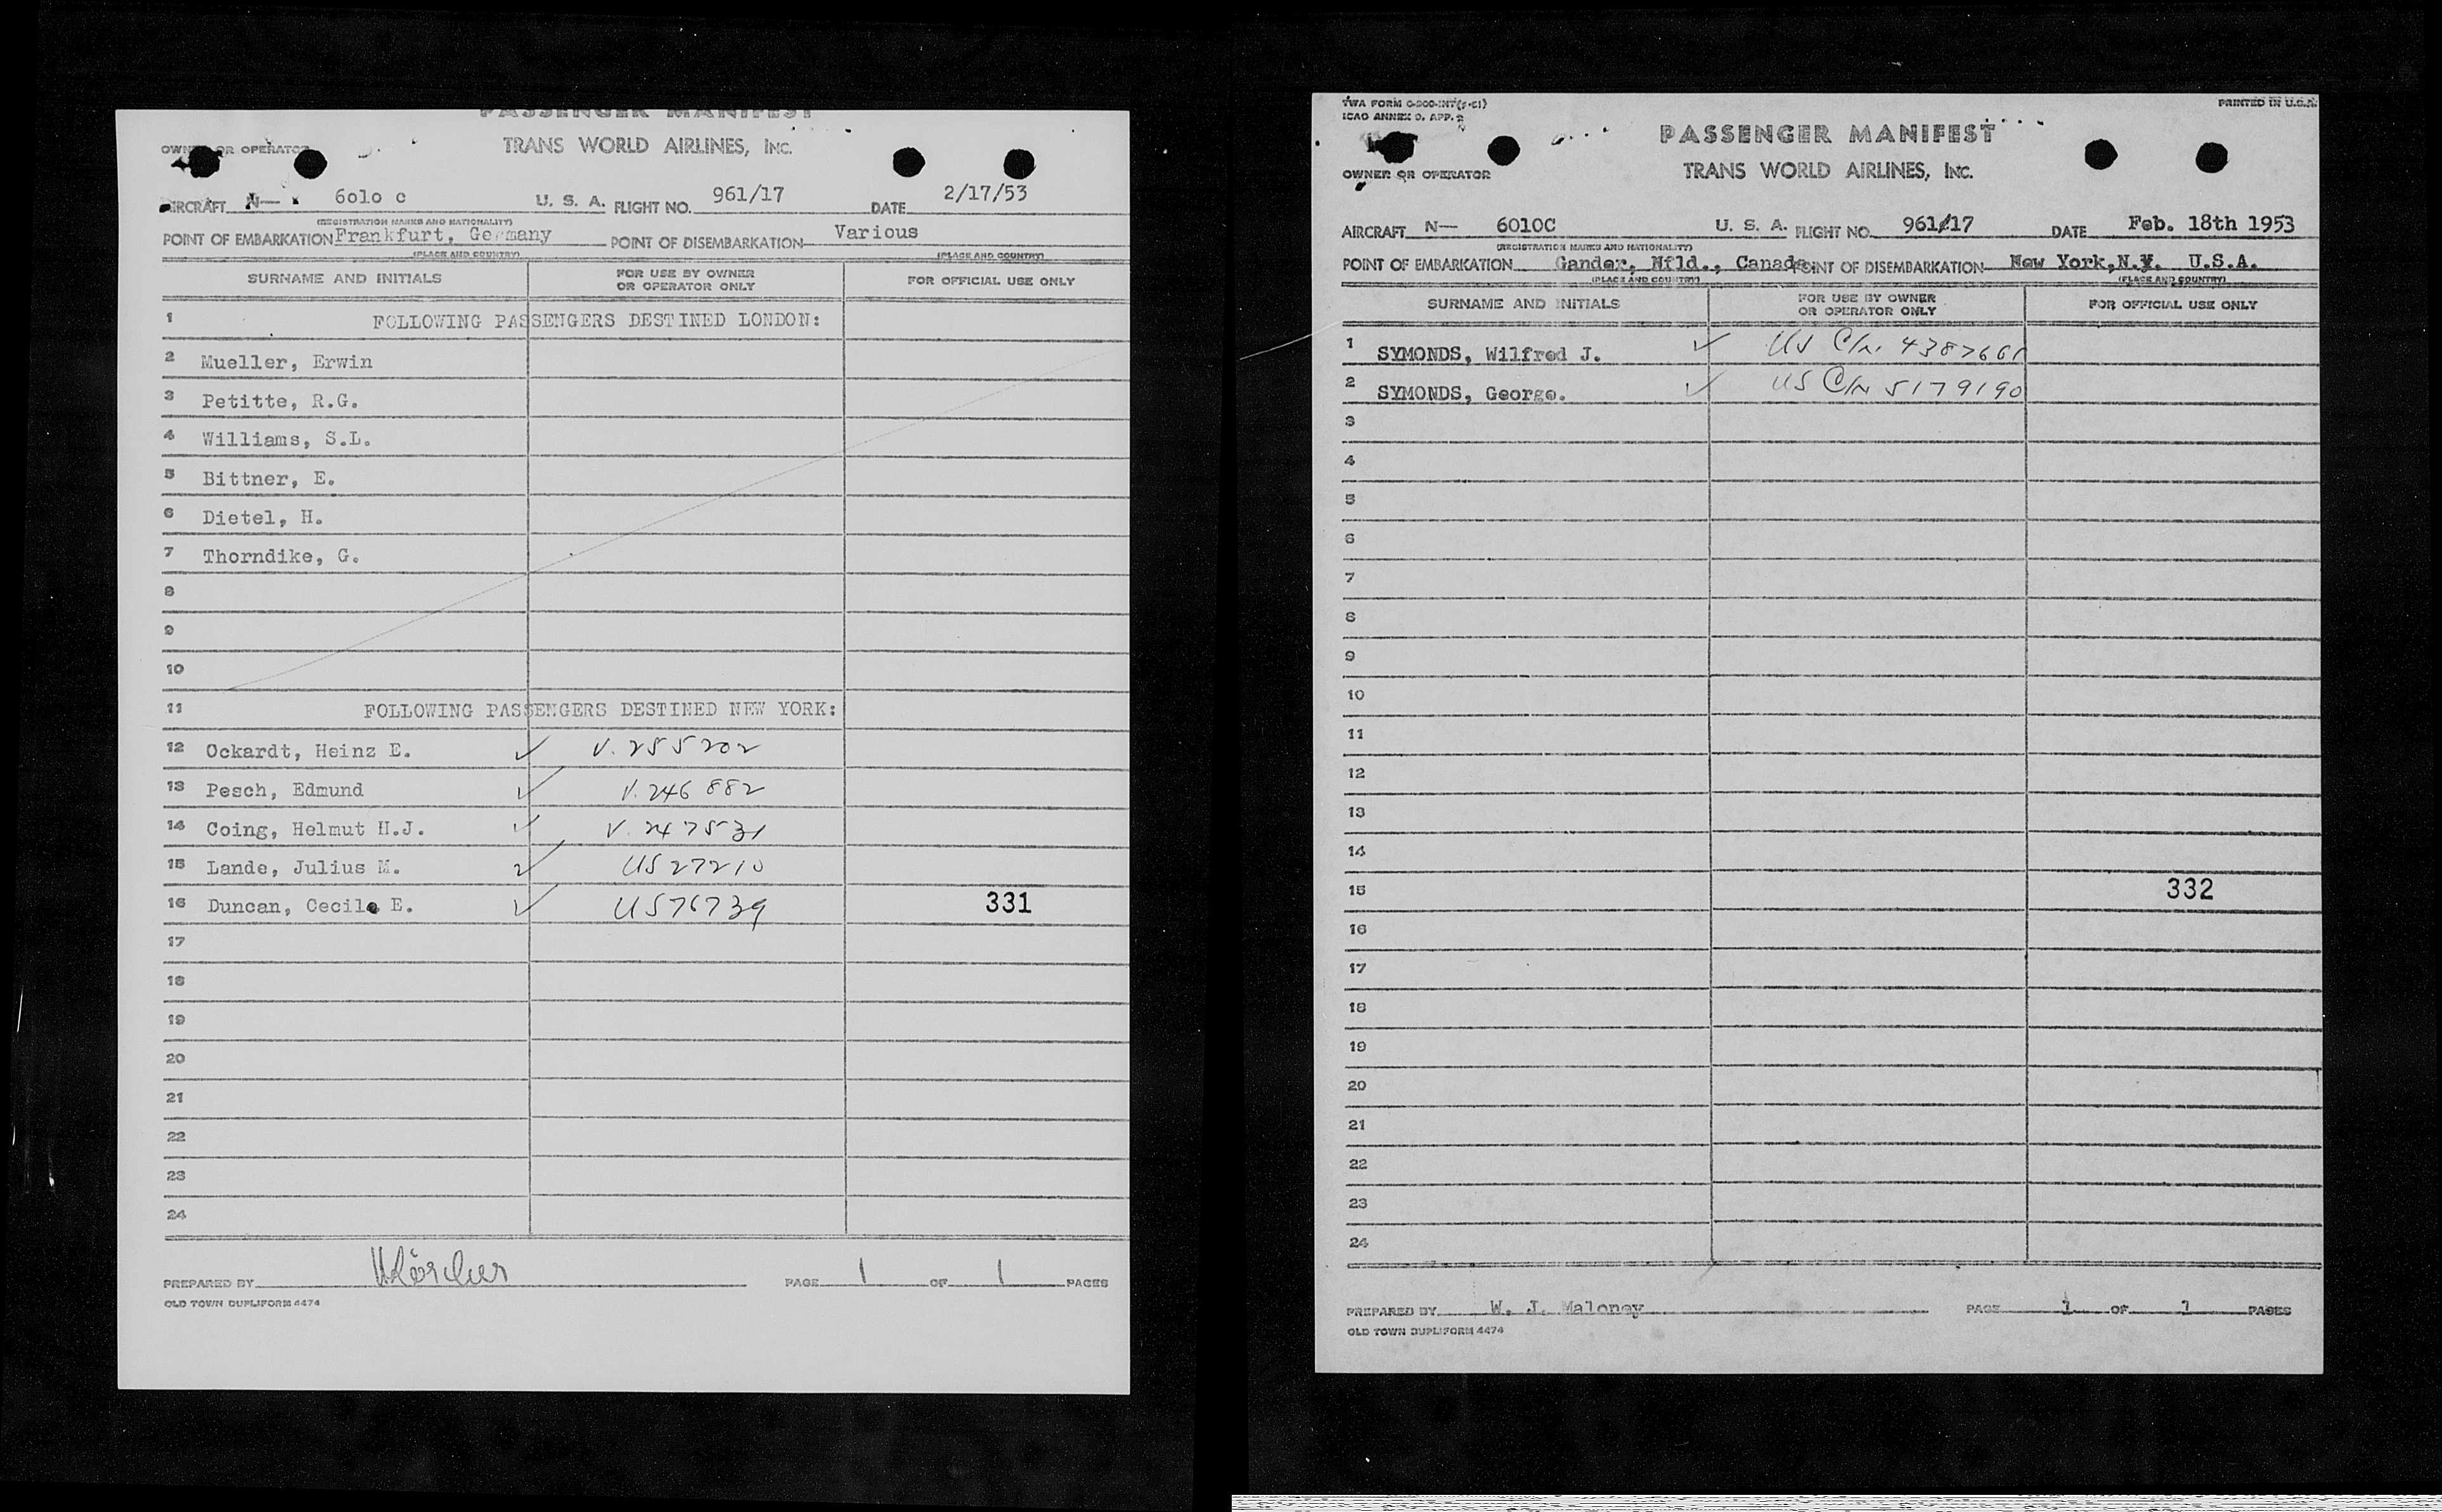 PASSENGER MANIFEST
TRANS WORLD AIRLINES, INC.
OWNER OR OPERATOR
AIRCRAFT N— 6olo c U. S. A. FLIGHT NO. 961/17 DATE 2/17/53
(REGISTRATION MARKS AND NATIONALITY)
POINT OF EMBARKATION Frankfurt, Germany POINT OF DISEMBARKATION Various
(PLACE AND COUNTRY) (PLACE AND COUNTRY)
SURNAME AND INITIALS FOR USE BY OWNER OR OPERATOR ONLY FOR OFFICIAL USE ONLY
1 FOLLOWING PASSENGERS DESTINED LONDON:
2 Mueller, Erwin
3 Petitte, R.G.
4 Williams, S.L.
5 Bittner, E.
6 Dietel, H.
7 Thorndike, G.
8
9
10
11 FOLLOWING PASSENGERS DESTINED NEW YORK:
12 Ockardt, Heinz E. ✓ V. 255202
13 Pesch, Edmund ✓ V. 246 882
14 Coing, Helmut H.J. ✓ V. 247531
15 Lande, Julius M. ✓ US 27210
16 Duncan, Cecile E. ✓ US 76739 331
17
18
19
20
21
22
23
24
PREPARED BY PAGE 1 OF 1 PAGES
OLD TOWN DUPLIFORM 4474
TWA FORM O-900-INT(5-51) PRINTED IN U.S.A.
ICAO ANNEX 9, APP. 2
PASSENGER MANIFEST
TRANS WORLD AIRLINES, INC.
OWNER OR OPERATOR
AIRCRAFT N— 6010C U. S. A. FLIGHT NO. 961/17 DATE Feb. 18th 1953
(REGISTRATION MARKS AND NATIONALITY)
POINT OF EMBARKATION Gander, Nfld., Canada POINT OF DISEMBARKATION New York, N.Y. U.S.A.
(PLACE AND COUNTRY) (PLACE AND COUNTRY)
SURNAME AND INITIALS FOR USE BY OWNER OR OPERATOR ONLY FOR OFFICIAL USE ONLY
1 SYMONDS, Wilfred J. ✓ US C/N 4387661
2 SYMONDS, George. ✓ US C/N 5179190
3
4
5
6
7
8
9
10
11
12
13
14
15 332
16
17
18
19
20
21
22
23
24
PREPARED BY W. J. Maloney PAGE 1 OF 1 PAGES
OLD TOWN DUPLIFORM 4474